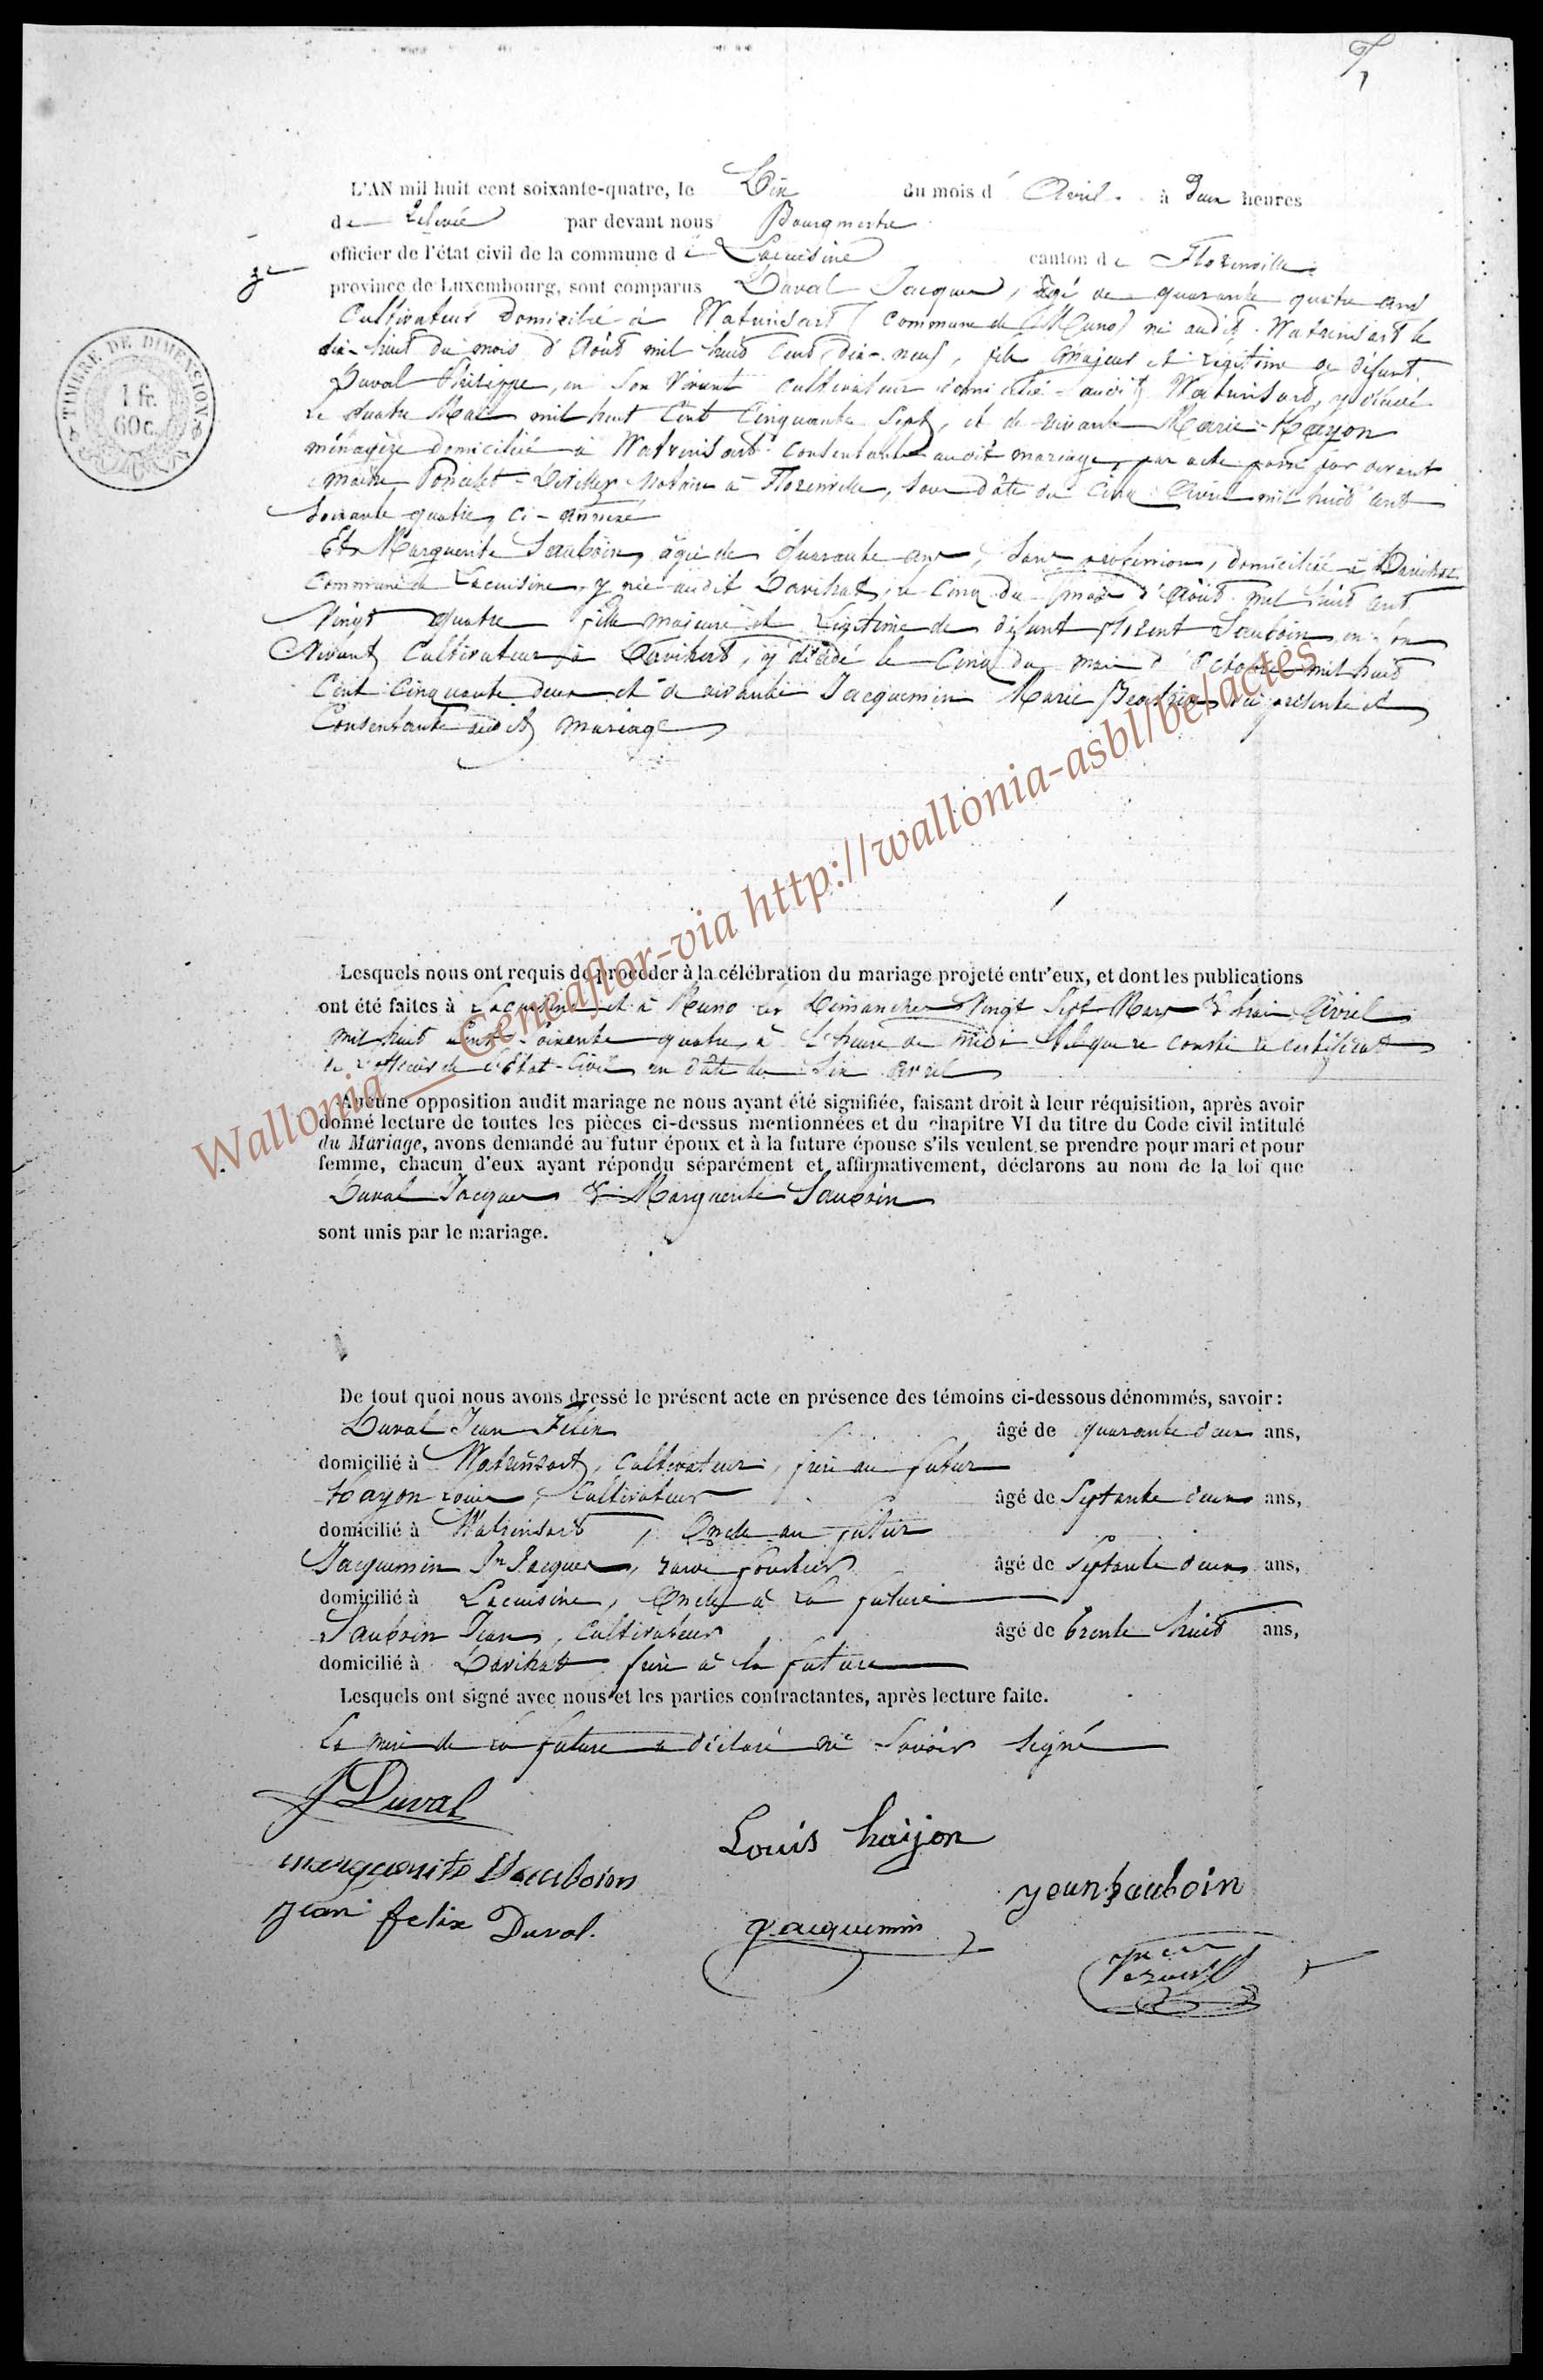 L'AN mil huit cent soixante-quatre, le Six du mois d' Avril à Deux heures
de Relevée par devant nous Bourgmestre
officier de l'état civil de la commune de Lacuisine canton de Florenville
3e
province de Luxembourg, sont comparus Duval Jacques, âgé de quarante quatre ans
Cultivateur domicilié à Watrinsart (commune de Muno) né audit Watrinsart le
dix-huit du mois d'Août mil huit cent dix-neuf, fils Majeur et légitime de défunt
Duval Philippe, en son vivant cultivateur domicilié audit Watrinsart, y décédé
le quatre Mai mil huit Cent Cinquante Sept, et de vivante Marie Hayon
ménagère domiciliée à Watrinsart consentante audit mariage, par acte passé par devant
maître Poncelet Notaire à Florenville, sous date du Cinq Avril mil huit cent
soixante quatre, ci-annexé
Et Marguerite Sauboin, âgée de Quarante ans, sans profession, domiciliée à
Commune de Lacuisine, y née audit le Cinq du mois d'Août mil huit cent
Vingt quatre fille majeure et légitime de défunt Florent Sauboin en son
Vivant Cultivateur à, y décédé le Cinq du mois d'Octobre mil huit
Cent Cinquante deux et de vivante Jacquemin Marie ici présente et
Consentante audit mariage
TIMBRE DE DIMENSION
1 fr.
60 c.
Lesquels nous ont requis de procéder à la célébration du mariage projeté entr'eux, et dont les publications
ont été faites à Lacuisine et à Muno les Dimanches Vingt Sept Mars & trois Avril
mil huit cent soixante quatre, à l'heure de midi tel que le constate le certificat
de l'officier de l'État-Civil en date du Six avril
Aucune opposition audit mariage ne nous ayant été signifiée, faisant droit à leur réquisition, après avoir
donné lecture de toutes les pièces ci-dessus mentionnées et du chapitre VI du titre du Code civil intitulé
du Mariage, avons demandé au futur époux et à la future épouse s'ils veulent se prendre pour mari et pour
femme, chacun d'eux ayant répondu séparément et affirmativement, déclarons au nom de la loi que
Duval Jacques & Marguerite Sauboin
sont unis par le mariage.
De tout quoi nous avons dressé le présent acte en présence des témoins ci-dessous dénommés, savoir :
Duval Jean Félix âgé de quarante deux ans,
domicilié à Watrinsart, cultivateur, frère au futur
Hayon Louis, Cultivateur âgé de Septante deux ans,
domicilié à Watrinsart, Oncle au futur
Jacquemin Jn Jacques, âgé de Septante deux ans,
domicilié à Lacuisine, Oncle à la future
Sauboin Jean, Cultivateur âgé de trente huit ans,
domicilié à frère à la future
Lesquels ont signé avec nous et les parties contractantes, après lecture faite.
La mère de la future a déclaré ne savoir signé
J Duval
Louis haijon
marguerite Sauboin
jean Sauboin
jean felix Duval.
Jacquemin
Wallonia__Geneaflor-via http://wallonia-asbl/be/actes